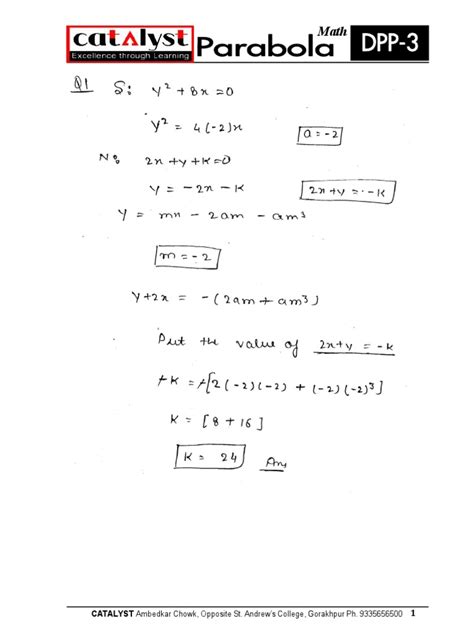 catalyst
Excellence through Learning
Parabola
Math
DPP-3
Q1 S: y² + 8x = 0
y² = 4(-2)x
a = -2
N: 2x + y + K = 0
y = -2x - K
2x + y = -K
y = mx - 2am - am³
m = -2
y + 2x = -(2am + am³)
Put the value of 2x + y = -K
-K = -[2(-2)(-2) + (-2)(-2)³]
K = [8 + 16]
K = 24 Ans
CATALYST Ambedkar Chowk, Opposite St. Andrew's College, Gorakhpur Ph. 9335656500 1